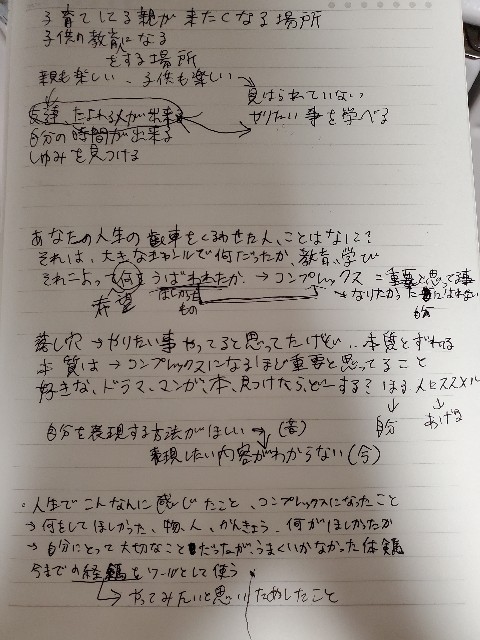 子育てしてる親が来たくなる場所
子供の教育になる
をする場所
親も楽しい、子供も楽しい
見はられていない
やりたい事を学べる
友達、たよれる人が出来る
自分の時間が出来る
しゅみを見つける
あなたの人生の歯車をくるわせた人、ことはなに?
それは、大きなで何だったか、教育、学び
それによって何をうばわれたか→コンプレックス=重要と思ってる事
希望
ほしかった
もの
→なりたかったになれない
自分
落し穴→やりたい事やってると思ってたけど、本質とずれる
本質は→コンプレックスになるほど重要と思ってること
好きな、ドラマ、マンガ、本、見つけたら、どーする?ほる人にススメル
自分
あげる
自分を表現する方法がほしい(昔)
表現したい内容がわからない(今)
・人生でこんなんに感じたこと、コンプレックスになったこと
→何をしてほしかった、物、人、かんきょう、何がほしかったか
→自分にとって大切なことだったが、うまくいかなかった体験
今までの経験をツールとして使う
→やってみたいと思いためしたこと